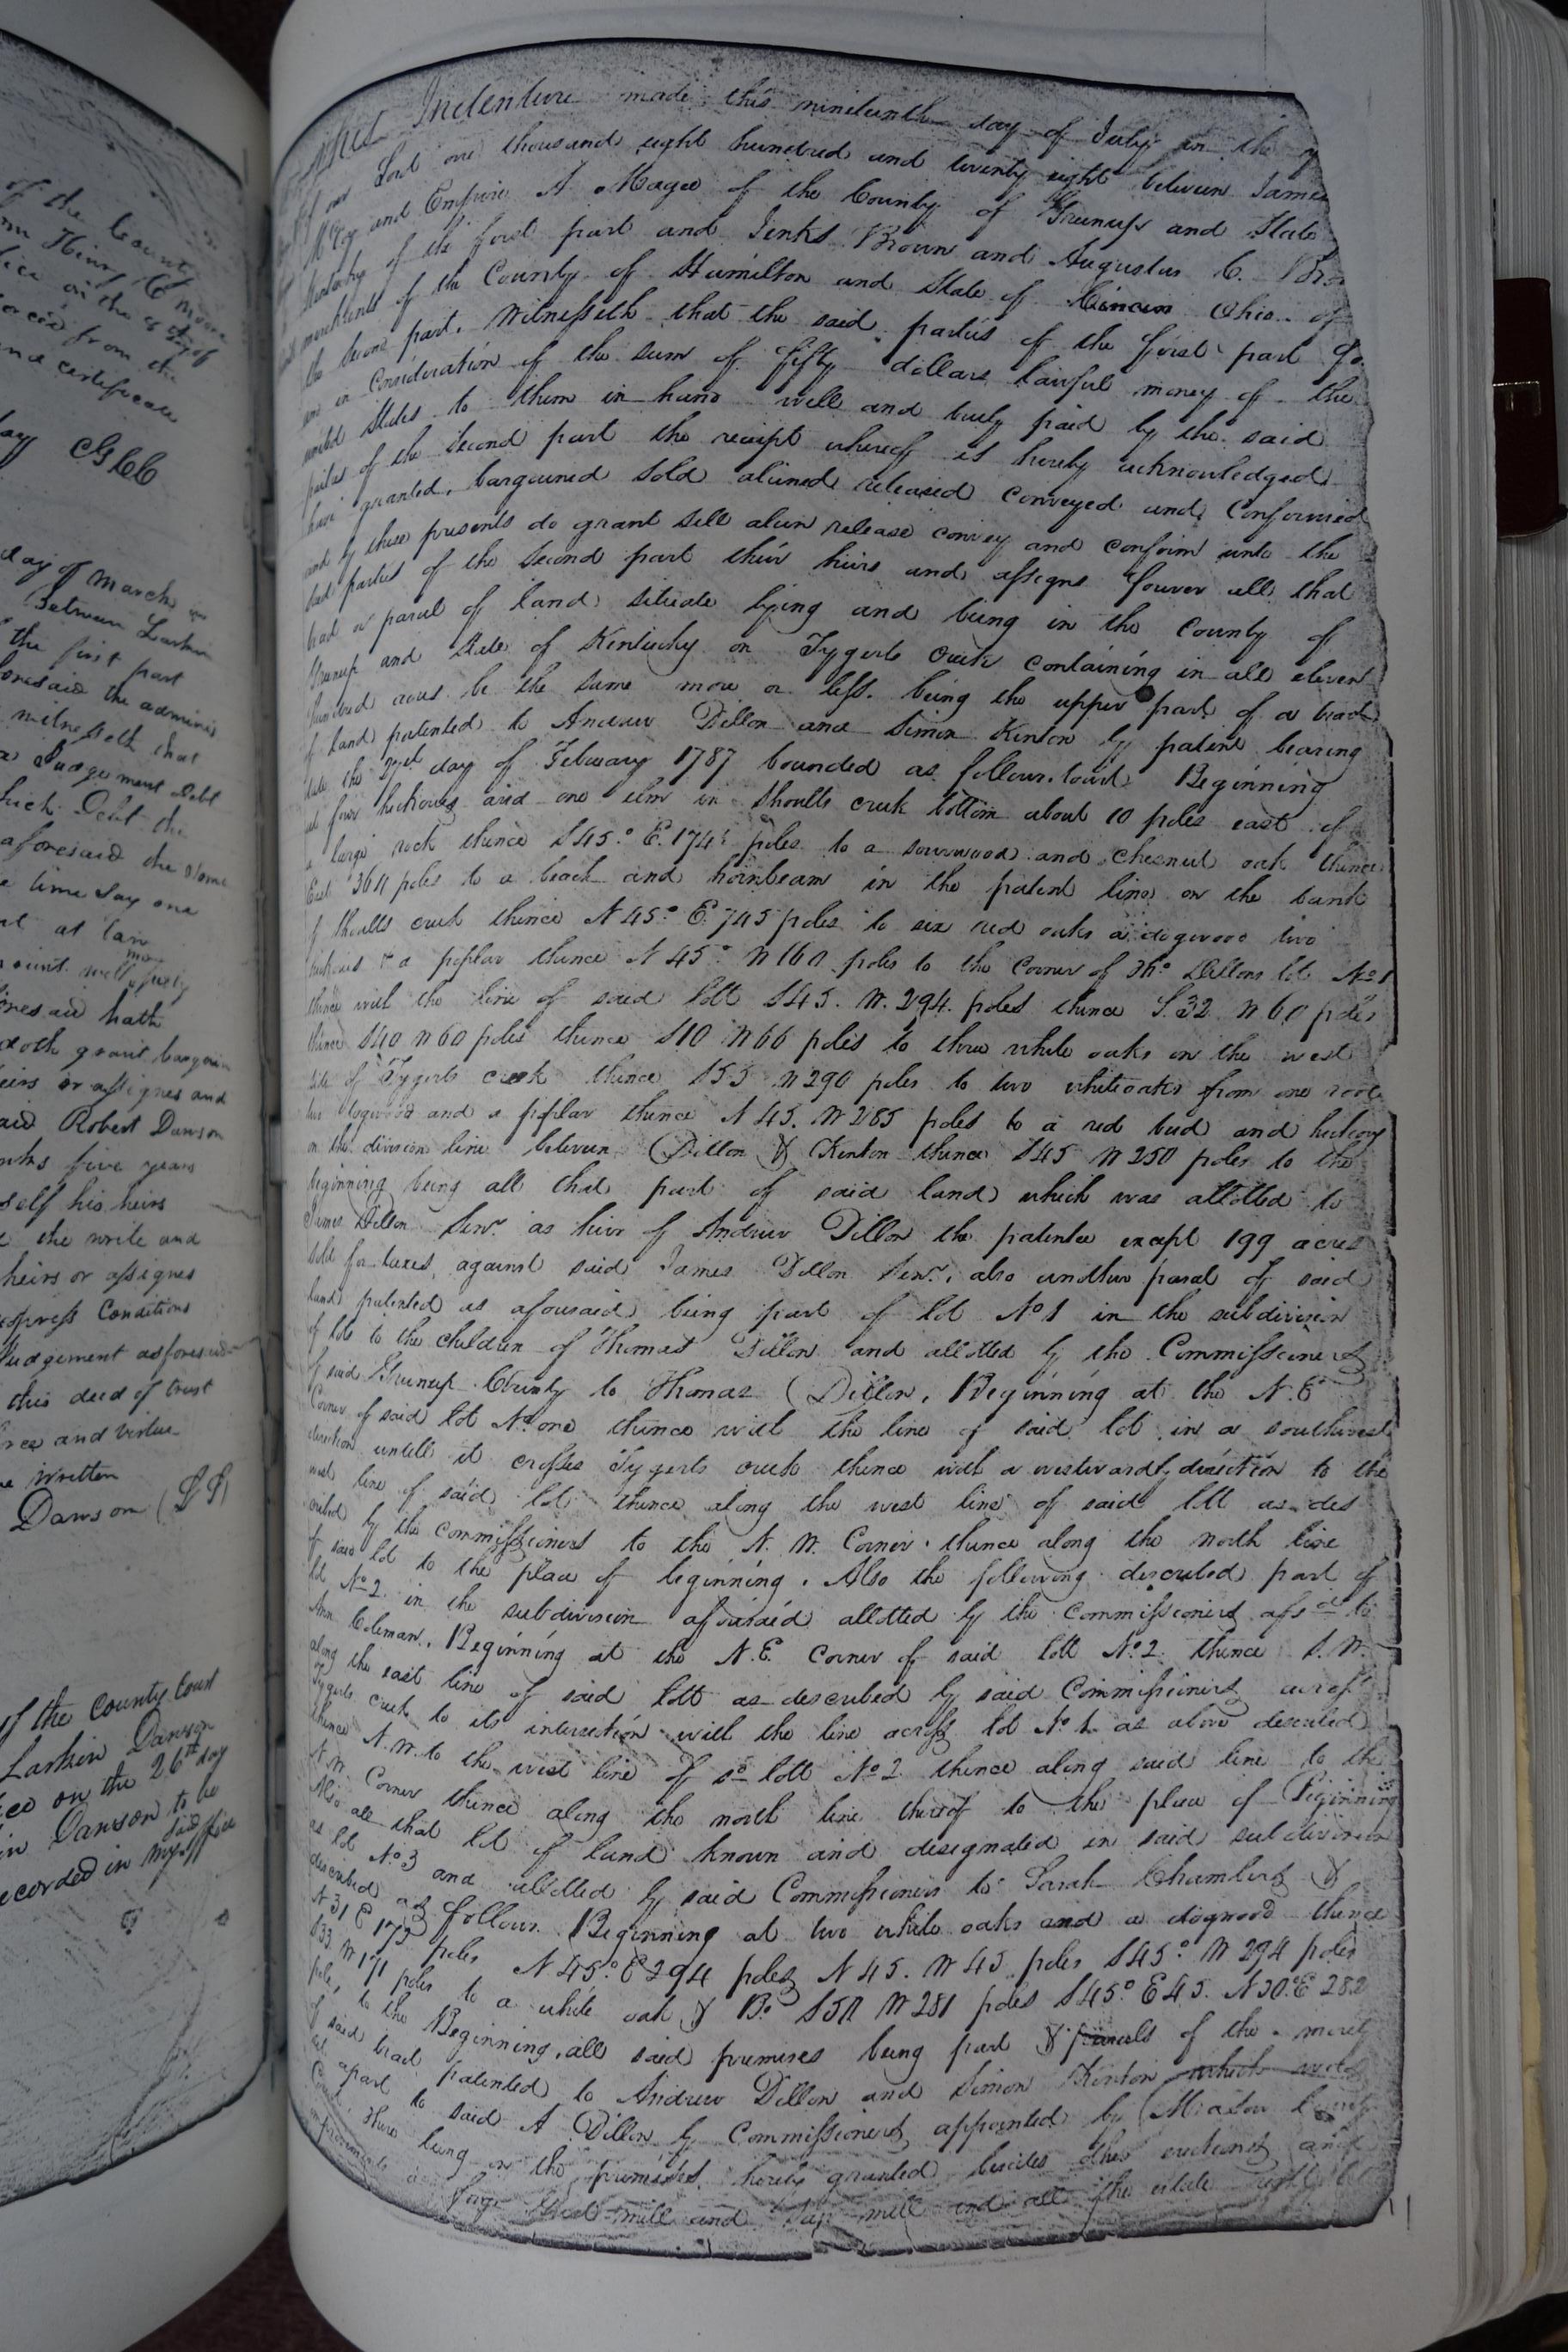 of the County
Henry C Moore
office on the 9 day of
from the
and certificate
day CGCC
day of March in
Between Larkin
the first part
aforesaid the adminis
witnesseth that
a Judgement Debt
which Debt the
aforesaid the same
time say one
at law
aforesaid hath
doth grant bargain
heirs or assignes and
said Robert Dawson
five years
self his heirs
the write and
heirs or assignes
express Conditions
Judgement aforesaid
this deed of trust
and virtue
written
Dawson (LS)
of the County Court
Larkin Dawson
on the 26th day
Dawson to be
recorded in my said office
This Indenture made this ninteenth day of July in the y
of our Lord one thousand eight hundred and twenty eight between James
McCoy and Empire A Magee of the County of Greenup and State
Kentucky of the first part and Jenks Brown and Augustus C. Bro
merchants of the County of Hamilton and State of Cincin Ohio of
the second part. Witnesseth that the said parties of the first part fo
and in Consideration of the sum of fifty dollars lawful money of the
united States to them in hand well and truly paid by the said
parties of the second part the receipt whereof is hereby acknowledged
have granted, bargained sold aliened released conveyed and Confirmed
and by these presents do grant sell alien release convey and confirm unto the
said parties of the second part their heirs and assigns forever all that
tract or parcel of land situate lying and being in the County of
Greenup and State of Kentucky on Tygerts creek containing in all eleven
hundred acres be the same more or less. being the upper part of a tract
of land patented to Andrew Dillon and Simon Kenton by patent bearing
date the 27th day of February 1787 bounded as follows. towit Beginning
at four hickories and one elm in Shoults creek bottom about 10 poles east of
a large rock thence S45.° E. 174 poles to a sourwood and chesnut oak thence
East 360 poles to a beach and hornbeam in the patent line on the bank
of Shoults creek thence N 45.° E. 745 poles to six red oaks a dogwood two
hickories & a poplar thence N 45° W 160 poles to the Corner of Tho. Dillons lot No 1
thence with the line of said lott S45. W. 294. poles thence S. 32 W 60 poles
thence S40 W 60 poles thence S10 W 66 poles to three white oaks on the west
side of Tygerts creek thence S55 W 290 poles to two whiteoaks from one root
two dogwood and a poplar thence N 45. W 285 poles to a red bud and hickory
on the division line between Dillon & Kenton thence S45 W 250 poles to the
beginning being all that part of said land which was allotted to
James Dillon Senr. as heir of Andrew Dillon the patentee except 199 acres
sold for taxes, against said James Dillon Senr. also another parcel of said
land patented as aforesaid being part of lot No 1 in the subdivision
of lots to the children of Thomas Dillon and allotted by the Commissioners
of said Greenup County to Thomas Dillon. Beginning at the N. E
Corner of said lot No. one thence with the line of said lot in a southwest
direction untill it crosses Tygerts creek thence with a westwardly direction to the
west line of said lot thence along the west line of said lott as des
cribed by the commissioners to the N. W. Corner. thence along the north line
of said lot to the place of beginning. Also the following described part of
lot No 2. in the subdivision aforesaid allotted by the Commissioners afsd to
Ann Coleman. Beginning at the N.E. Corner of said lott No 2. thence S.W.
along the east line of said lott as described by said Commissioners across
Tygerts creek to its intersection with the line across lot No 1. as above described
thence N.W. to the west line of sd lott No 2 thence along said line to the
N.W. Corner thence along the north line thereof to the place of Beginning
Also all that lot of land known and designated in said subdivision
as lot No 3 and allotted by said Commissioners to Sarah Chambers &
described as follows. Beginning at two white oaks and a dogwood thence
N 31 E 173 poles N 45.° E 294 poles N 45. W 45 poles S45.° W 294 poles
S33 W 171 poles to a white oak & Bo S50 W 281 poles S45.° E 45. N 50.° E 282
poles to the Beginning. all said premises being part & parcels of the moiety
of said tract patented to Andrew Dillon and Simon Kenton which was
set apart to said A Dillon by Commissioners appointed by Mason County
Court. There being on the premises hereby granted besides other erections and
improvements a forge Grist mill and Saw mill and all the estate right